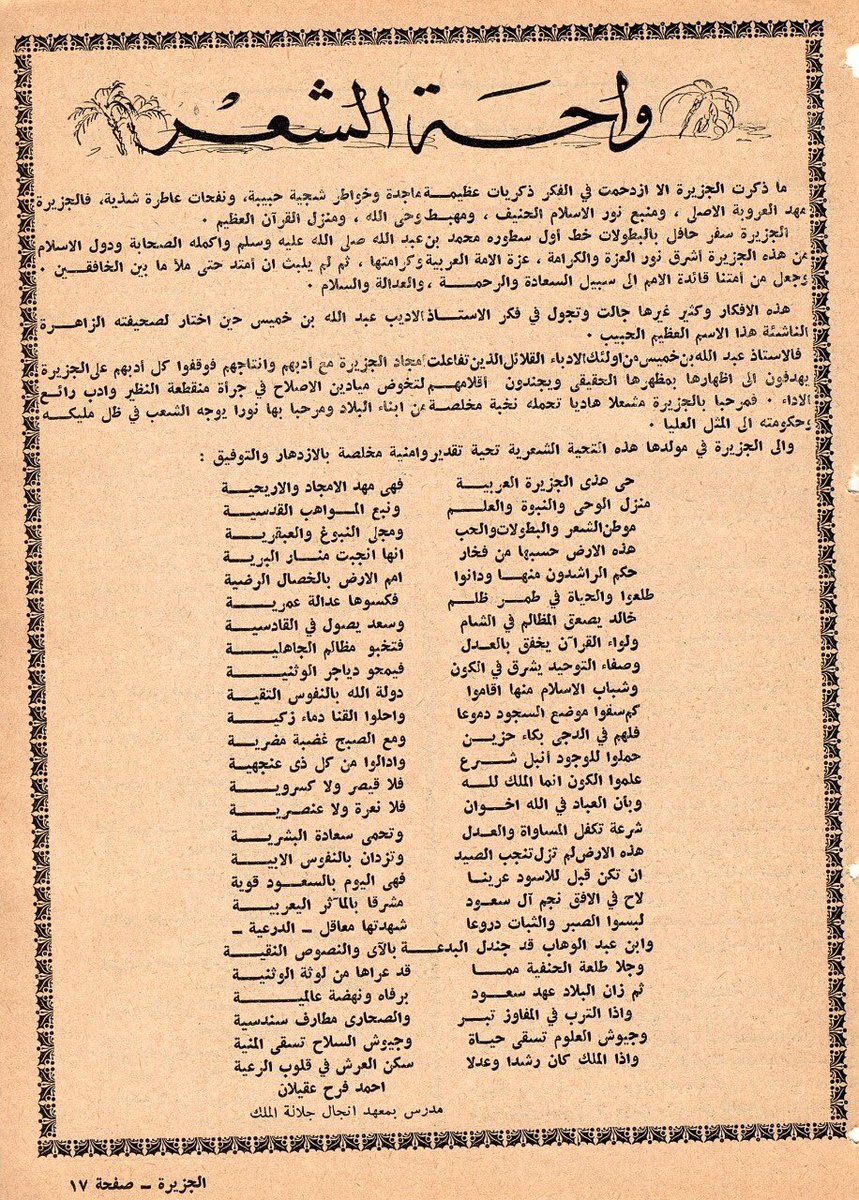 واحة الشعر
ما ذكرت الجزيرة الا ازدحمت في الفكر ذكريات عظيمة ماجدة وخواطر شجية حبيبة، ونفحات عاطرة شذية، فالجزيرة
مهد العروبة الاصل، ومنبع نور الاسلام الحنيف، ومهبط وحى الله، ومنزل القرآن العظيم.
الجزيرة سفر حافل بالبطولات خط أول سطوره محمد بن عبد الله صلى الله عليه وسلم واكمله الصحابة ودول الاسلام
من هذه الجزيرة أشرق نور العزة والكرامة، عزة الامة العربية وكرامتها، ثم لم يلبث ان أمتد حتى ملأ ما بين الخافقين.
وجعل من أمتنا قائدة الامم الى سبيل السعادة والرحمة، والعدالة والسلام.
هذه الافكار وكثير غيرها جالت وتجول في فكر الاستاذ الاديب عبد الله بن خميس حين اختار لصحيفته الزاهرة
الناشئة هذا الاسم العظيم الحبيب.
فالاستاذ عبد الله بن خميس من اولئك الادباء القلائل الذين تفاعلت أمجاد الجزيرة مع أدبهم وانتاجهم فوقفوا كل أدبهم على الجزيرة
يهدفون الى اظهارها بمظهرها الحقيقى ويجندون أقلامهم لتخوض ميادين الاصلاح في جرأة منقطعة النظير وادب رائع
الاداء. فمرحبا بالجزيرة مشعلا هاديا تحمله نخبة مخلصة من ابناء البلاد ومرحبا بها نورا يوجه الشعب في ظل مليكه
وحكومته الى المثل العليا.
والى الجزيرة في مولدها هذه التحية الشعرية تحية تقدير وامنية مخلصة بالازدهار والتوفيق :
حى هذى الجزيرة العربية فهى مهد الامجاد والاريحية
منزل الوحى والنبوة والعلم ونبع المواهب القدسية
موطن الشعر والبطولات والحب ومجلى النبوغ والعبقرية
هذه الارض حسبها من فخار انها انجبت منار البرية
حكم الراشدون منها ودانوا امم الارض بالخصال الرضية
طلعوا والحياة في طمر ظلم فكسوها عدالة عمرية
خالد يصعق المظالم في الشام وسعد يصول في القادسية
ولواء القرآن يخفق بالعدل فتخبو مظالم الجاهلية
وصفاء التوحيد يشرق في الكون فيمحو دياجر الوثنية
وشباب الاسلام منها اقاموا دولة الله بالنفوس التقية
كم سقوا موضع السجود دموعا واحلوا القنا دماء زكية
فلهم في الدجى بكاء حزين ومع الصبح غضبة مضرية
حملوا للوجود أنبل شرع وادالوا من كل ذى عنجهية
علموا الكون انما الملك لله فلا قيصر ولا كسروية
وبأن العباد في الله اخوان فلا نعرة ولا عنصرية
شرعة تكفل المساواة والعدل وتحمى سعادة البشرية
هذه الارض لم تزل تنجب الصيد وتزدان بالنفوس الابية
ان تكن قبل للاسود عرينا فهى اليوم بالسعود قوية
لاح في الافق نجم آل سعود مشرقا بالمآثر اليعربية
لبسوا الصبر والثبات دروعا شهدتها معاقل ـ الدرعية ـ
وابن عبد الوهاب قد جندل البدعة بالآى والنصوص النقية
وجلا طلعة الحنفية مما قد عراها من لوثة الوثنية
ثم زان البلاد عهد سعود برفاه ونهضة عالمية
واذا الترب في المفاوز تبر والصحارى مطارف سندسية
وجيوش العلوم تسقى حياة وجيوش السلاح تسقى المنية
واذا الملك كان رشدا وعدلا سكن العرش في قلوب الرعية
احمد فرح عقيلان
مدرس بمعهد انجال جلالة الملك
الجزيرة ـ صفحة ١٧